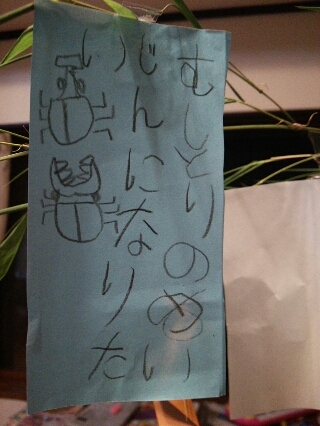 むしとりのめい
じんになりた
い